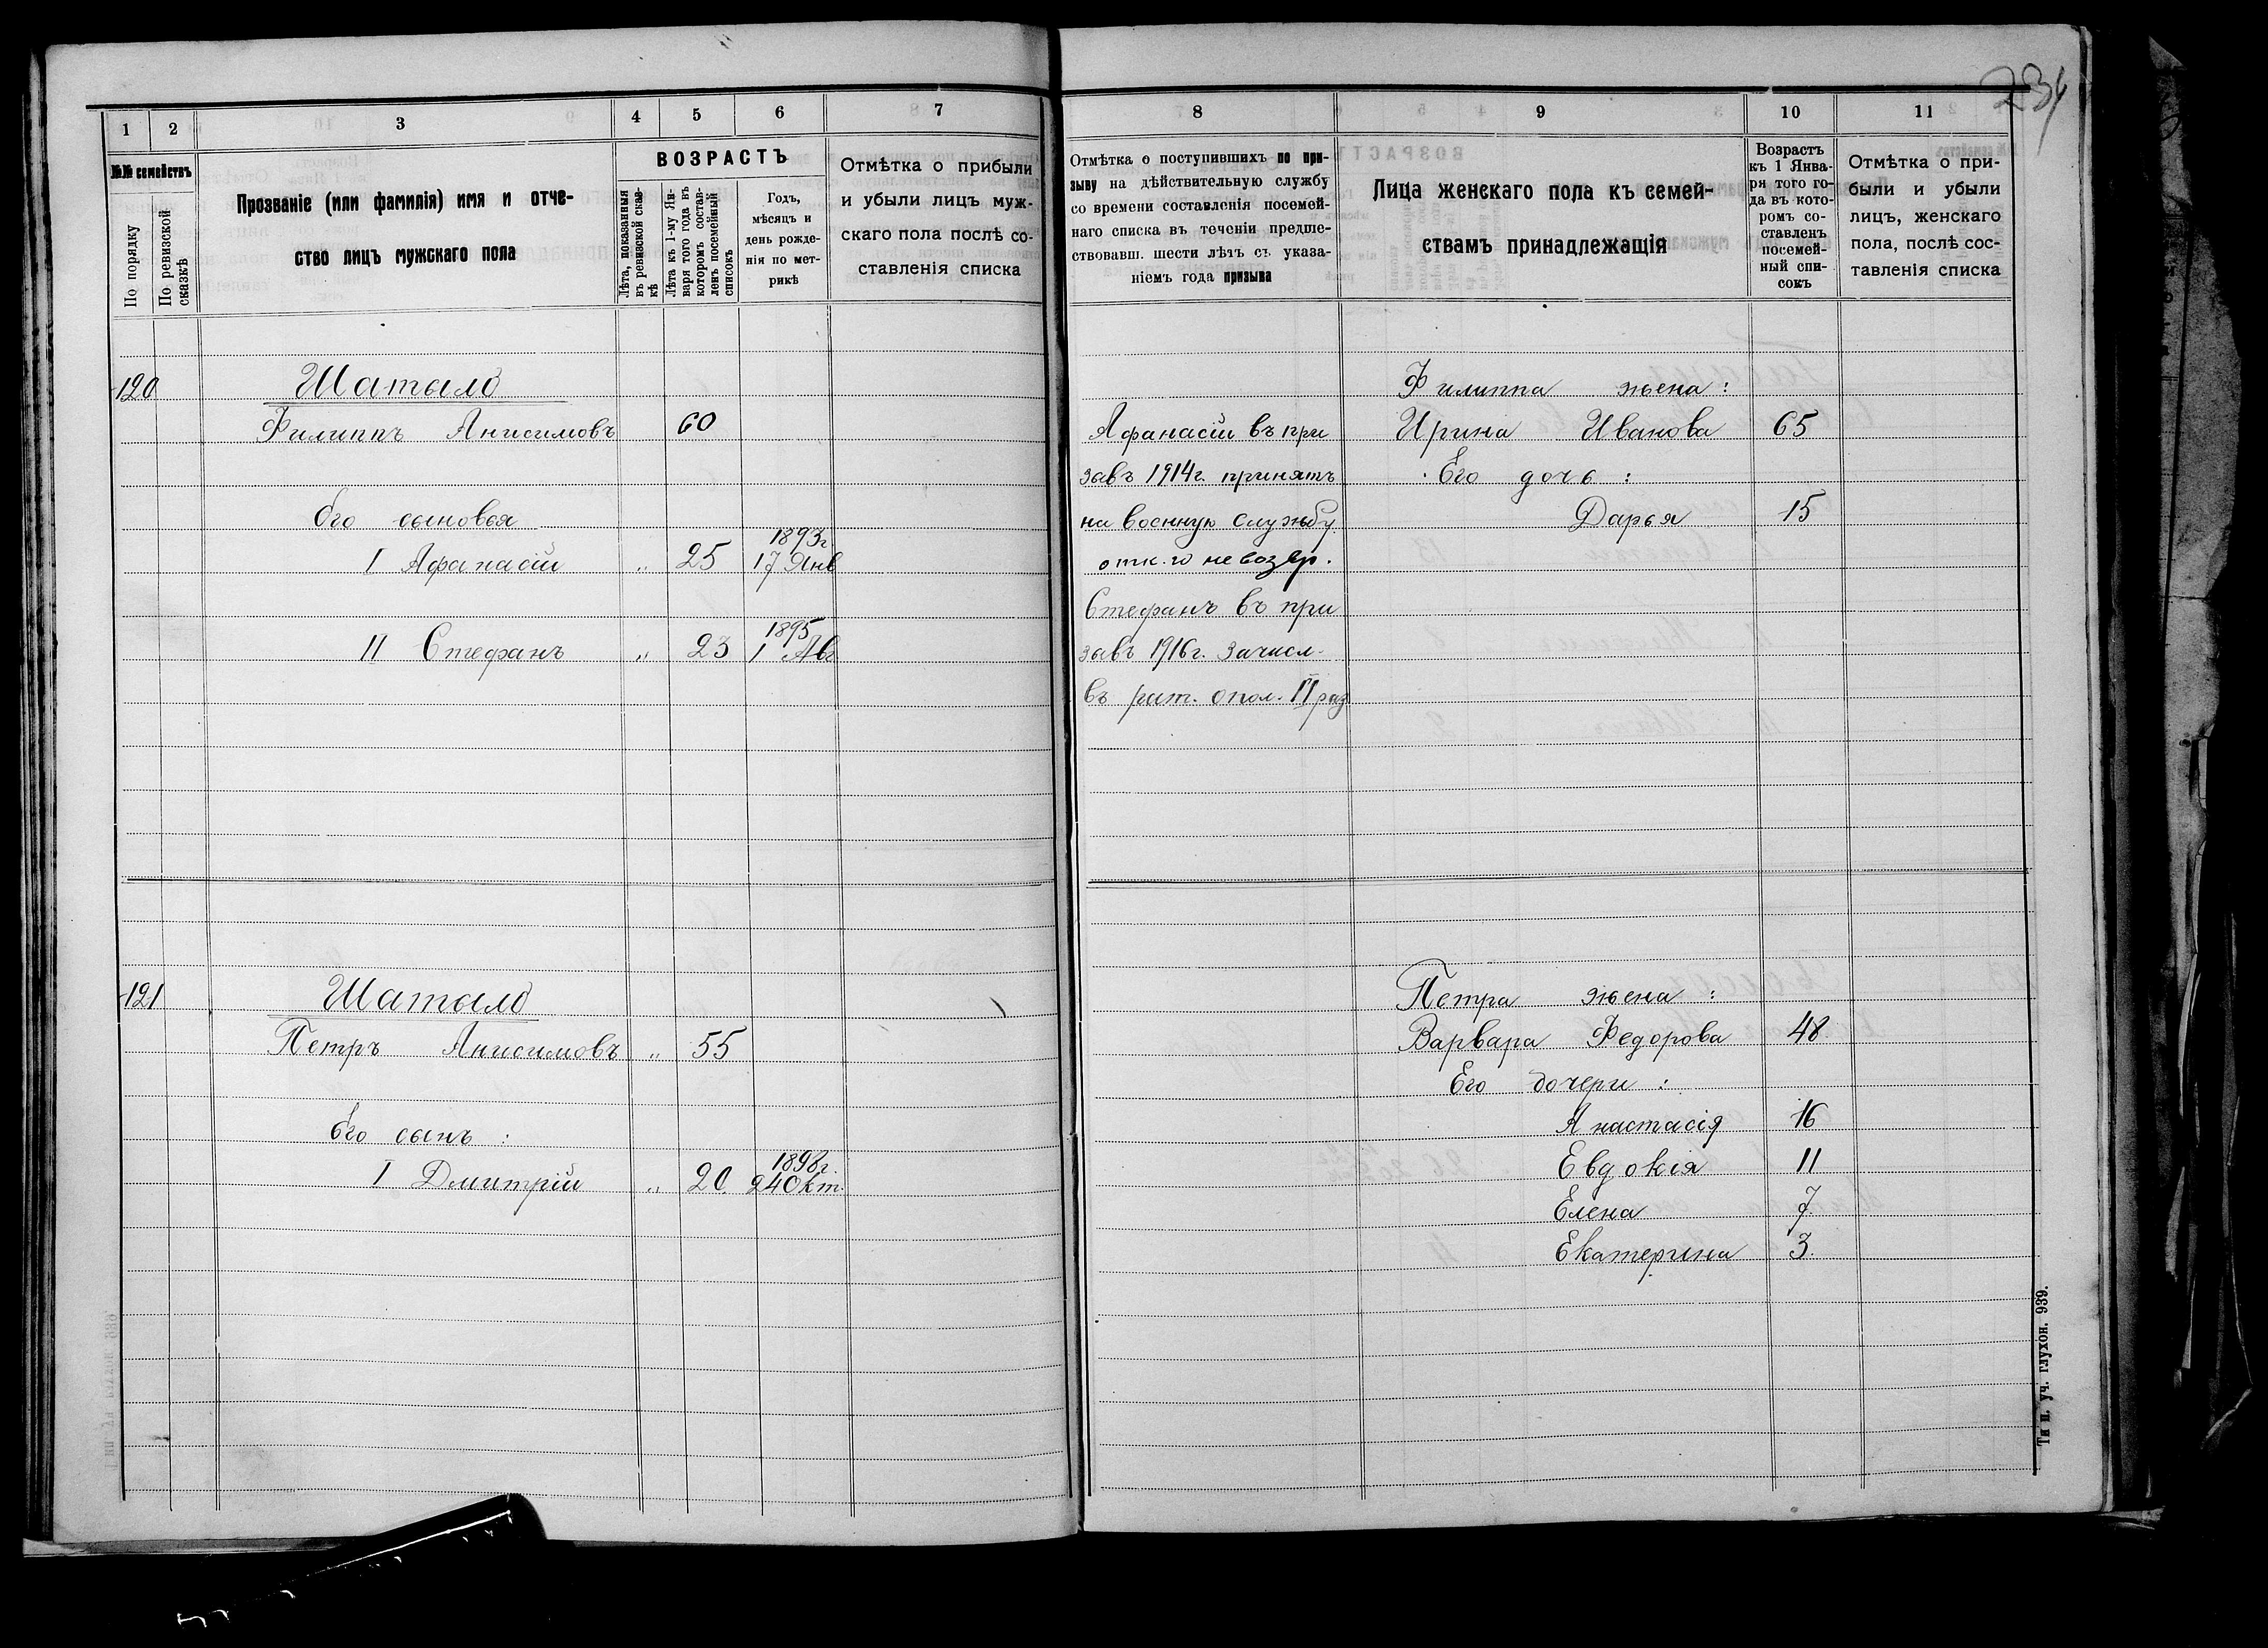 234
1 2 3 4 5 6 7
№№ семействъ
По порядку
По ревизской сказкѣ
Прозваніе (или фамилія) имя и отче-
ство лицъ мужскаго пола
ВОЗРАСТЪ
Лѣта, показанныя
въ ревизской сказ-
кѣ
Лѣта къ 1-му Ян-
варя того года въ
которомъ состав-
ленъ посемейный
списокъ
Годъ,
мѣсяцъ и
день рожде-
нія по мет-
рикѣ
Отмѣтка о прибыли
и убыли лицъ муж-
скаго пола послѣ со-
ставленія списка
120 Шатыло
Филиппъ Анисимовъ 60
Его сыновья
1893г.
I Афанасій „ 25 17 Янв
1895
II Стефанъ „ 23 1 Авг
121 Шатыло
Петръ Анисимовъ „ 55
Его сынъ :
1898г.
I Дмитрій „ 20 24 Окт.
8 9 10 11
Отмѣтка о поступившихъ по при-
зыву на дѣйствительную службу
со времени составленія посемей-
наго списка въ теченіи предше-
ствовавш. шести лѣтъ съ указа-
ніемъ года призыва
Лица женскаго пола къ семей-
ствамъ принадлежащія
Возрастъ
къ 1 Янва-
ря того го-
да въ кото-
ромъ со-
ставленъ
посемей-
ный спи-
сокъ
Отмѣтка о при-
были и убыли
лицъ, женскаго
пола, послѣ сос-
тавленія списка
Афанасій въ при
зывъ 1914г. принятъ
на военную службу
отк.го не возвр.
Стефанъ въ при
зывъ 1916г. зачисл.
въ рат. опол. II раз
Филиппа жена :
Ирина Иванова 65
Его дочь :
Дарья 15
Петра жена :
Варвара Федорова 48
Его дочери :
Анастасія 16
Евдокія 11
Елена 7
Екатерина 3.
Тип. уч. глухон. 939.